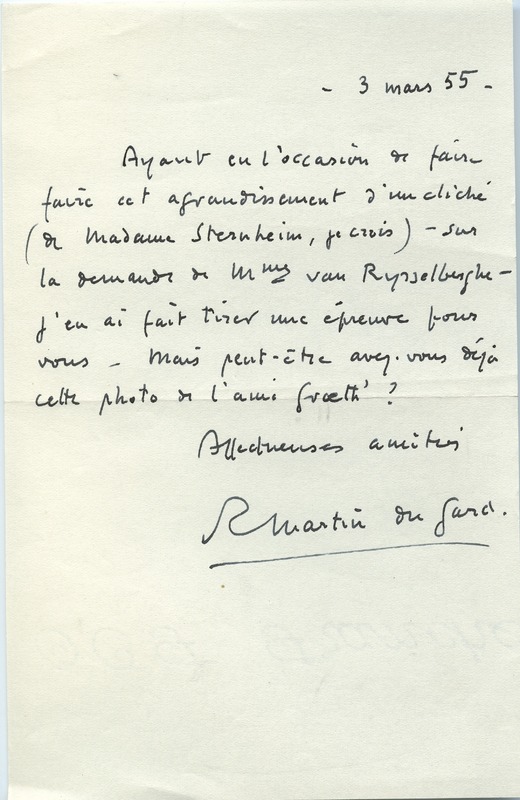 - 3 mars 55 -
Ayant eu l'occasion de faire
faire cet agrandissement d'un cliché
(de Madame Sternheim, je crois) - sur
la demande de Mme van Rysselberghe -
j'en ai fait tirer une épreuve pour
vous - Mais peut-être avez-vous déjà
cette photo de l'ami Groeth' ?
Affectueuses amitiés
R Martin du Gard.